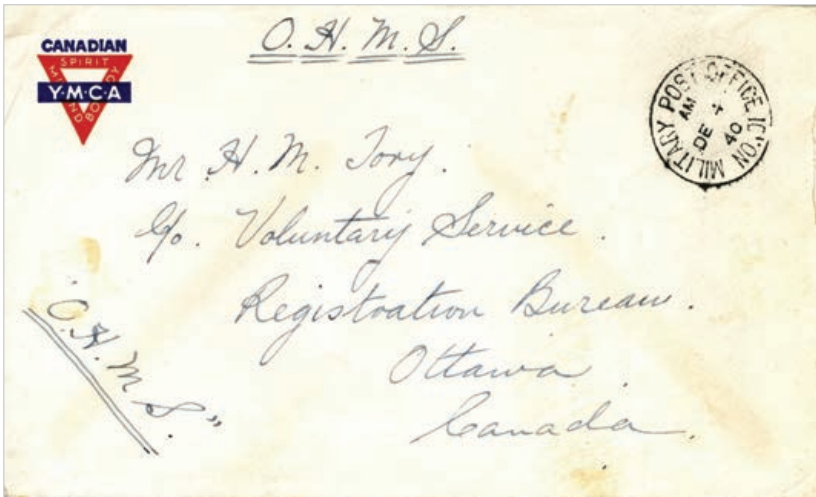 O. H. M. S.
CANADIAN
SPIRIT
Y·M·C·A
MIND
BODY
MILITARY POST OFFICE
AM
DE
40
Mr. H. M. Tory.
c/o. Voluntary Service.
Registration Bureau.
Ottawa
Canada.
"O. H. M. S."